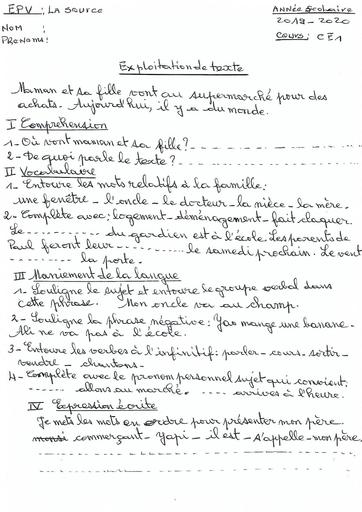 EPV : La Source
ANNÉE Scolaire
2019 - 2020
NOM :
PRENOMS :
COURS : CE1
Exploitation de texte
Maman et sa fille vont au supermarché pour des
achats. Aujourd'hui, il y a du monde.
I Compréhension
1- Où vont maman et sa fille ? - - - - - - - - - - - - - - - -
2 - De quoi parle le texte ? - - - - - - - - - - - - - - - -
II Vocabulaire
1- Entoure les mots relatifs à la famille :
une fenêtre - l'oncle - le docteur - la nièce - la mère.
2- Complète avec : logement - déménagement - fait claquer.
Le - - - - - - - - - du gardien est à l'école. Les parents de
Paul feront leur - - - - - - - - - - le samedi prochain. Le vent
- - - - - - - - la porte.
III Maniement de la langue
1- Souligne le sujet et entoure le groupe verbal dans
cette phrase. Mon oncle va au champ.
2 - Souligne la phrase négative : Yao mange une banane.
Ali ne va pas à l'école.
3 - Entoure les verbes à l'infinitif : parler - cours - sortir -
vendre - chantons.
4- Complète avec le pronom personnel sujet qui convient.
- - - - - - allons au marché. - - - - - arrives à l'heure.
IV Expression écrite
Je mets les mots en ordre pour présenter mon père.
commerçant - Yapi - il est - s'appelle - mon père.